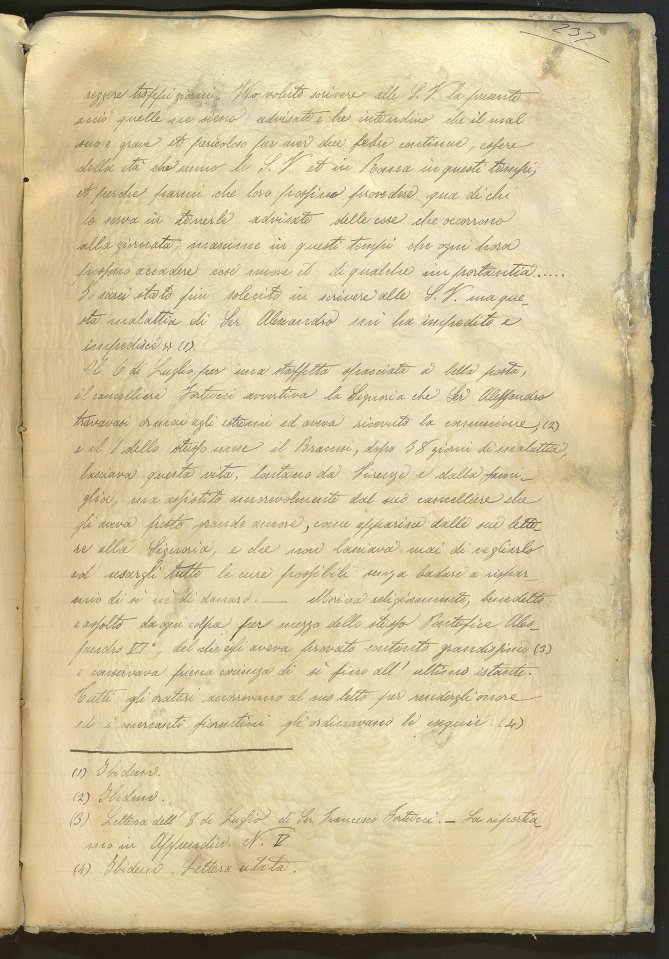 237
reggere troppi giorni. Ho voluto scrivere alle S. V. la presente
acciò quelle ne sieno advisate e che intendino che il mal
suo è grave et pericoloso per aver due febre continue, essere
della età che sanno le S. V. et in Roma in questi tempi;
et perchè parmi che loro possino provedere qua di chi
le serva in tenerle advisate delle cose che occorrono
alla giornata, maxime in questi tempi che ogni hora
possono accadere cose nuove et di qualche importantia.....
Io sarei stato più solecito in scrivere alle S. V. ma que-
sta malattia di Ser Alexandro mi ha impedito e
impedisce » (1).
Il 6 di Luglio, per una staffetta spacciata a bella posta,
il cancelliere Fortucci avvertiva la Signoria che Ser Alessandro
trovavasi ormai agli estremi ed aveva ricevuto la comunione, (2)
e il dello stesso mese il Bracesi, dopo 38 giorni di malattia,
lasciava questa vita, lontano da Firenze e dalla fami-
glia, ma assistito amorevolmente dal suo cancelliere che
gli aveva posto grande amore, come apparisce dalle sue lette-
re alla Signoria, e che non lasciava mai di vegliarlo
ed usargli tutte le cure possibili senza badare a rispar-
mio di sè nè di danaro. — Moriva religiosamente, benedetto
e assolto da ogni colpa per mezzo dello stesso Pontefice Ales-
sandro VI°, del che egli aveva provato contento grandissimo (3)
e conservava piena coscienza di sè fino all' ultimo istante.
Tutti gli oratori accorrevano al suo letto per rendergli onore
ed i mercanti fiorentini gli ordinavano le esequie. (4)
(1) Ibidem.
(2) Ibidem.
(3) Lettera dell' 8 di Luglio di Ser Francesco Fortucci. — La riportia-
mo in Appendice. N. V
(4) Ibidem. Lettera citata.